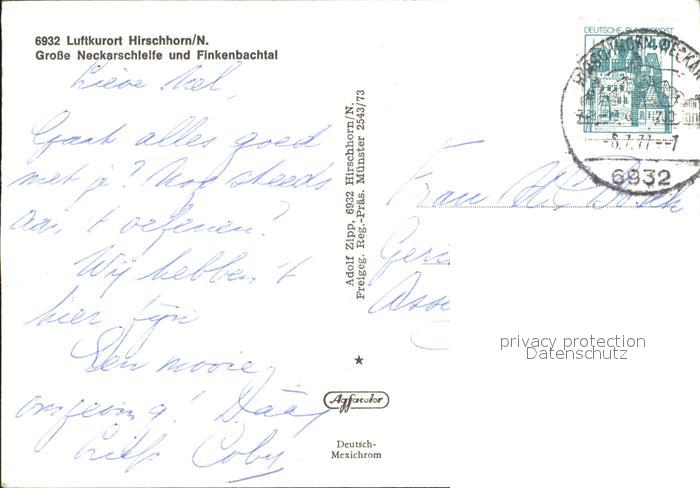 6932 Luftkurort Hirschhorn/N.
Große Neckarschleife und Finkenbachtal
Lieve
Gaat alles goed
met je? Nog steeds
aan 't oefenen?
Wij hebben 't
hier fijn
Een mooie
omgeving! Dáág
Liefs Coby
Adolf Zipp, 6932 Hirschhorn/N.
Freigeg. Reg.-Präs. Münster 2543/73
Agfacolor
Deutsch-
Mexichrom
DEUTSCHE BUNDESPOST
40
HIRSCHHORN NECKAR
-6.7.77--7
6932
Frau
Asse
privacy protection
Datenschutz